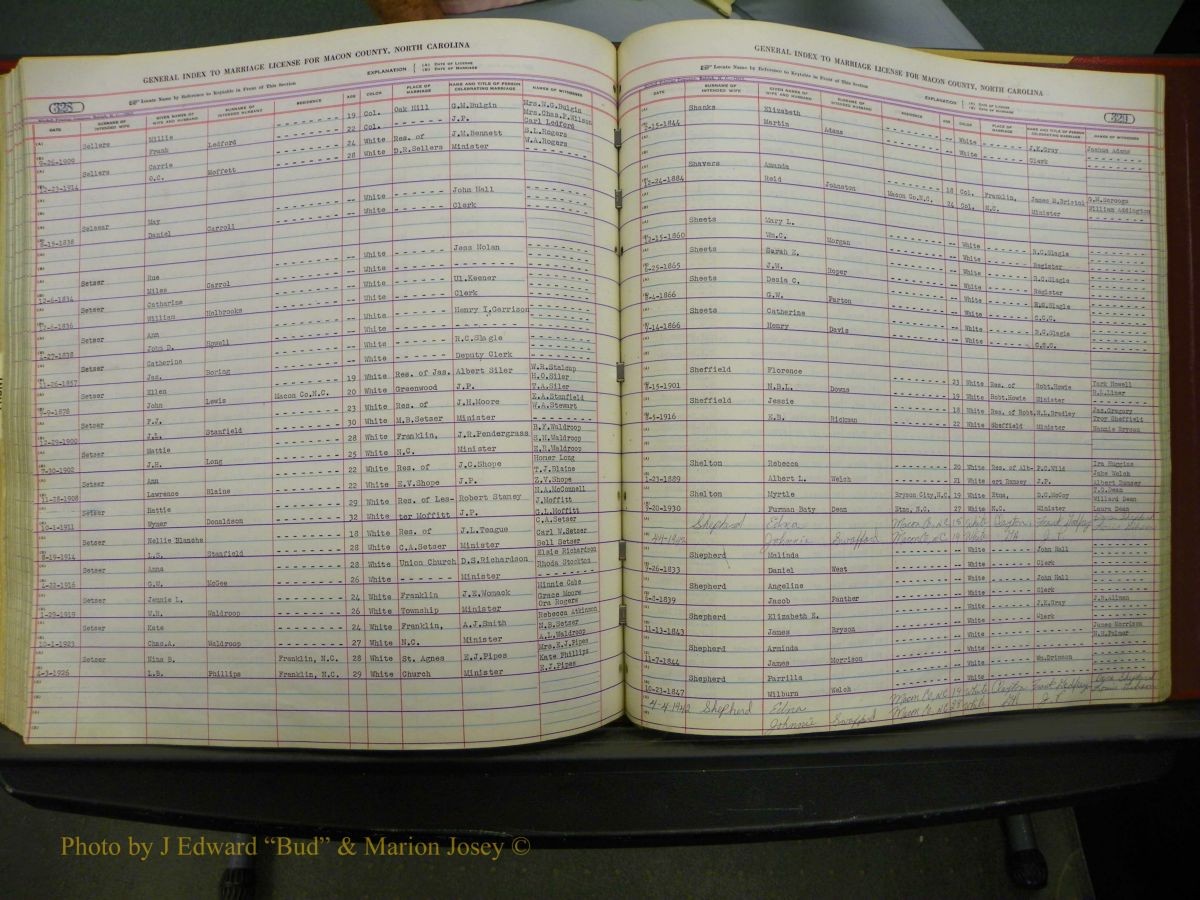 GENERAL INDEX TO MARRIAGE LICENSE FOR MACON COUNTY, NORTH CAROLINA
328
Locate Name by Reference to Keytable in Front of This Section
EXPLANATION (A) DATE OF LICENSE
(B) DATE OF MARRIAGE
DATE SURNAME OF INTENDED WIFE GIVEN NAMES OF WIFE AND HUSBAND SURNAME OF INTENDED HUSBAND RESIDENCE AGE COLOR PLACE OF MARRIAGE NAME AND TITLE OF PERSON CELEBRATING MARRIAGE NAMES OF WITNESSES
Sellers Millie 19 Col. Oak Hill G.M.Bulgin Mrs.W.G.Bulgin
9-26-1909 Frank Ledford 22 Col. J.P. Mrs.Chas.P.Wilson
Carl Ledford
Sellers Carrie 24 White Res. of J.M.Bennett S.L.Rogers
12-23-1914 O.C. Moffett 28 White D.R.Sellers Minister W.A.Rogers
May White John Hall
Daniel Carroll White Clerk
Setser Sue White Jess Nolan
12-6-1834 Miles Carrol White
Setser Catharine White Ul.Keener
William Holbrooks White Clerk
Setser Ann White Henry I.Garrison
John D. Howell White
Setser Catherine White R.C.Slagle
11-26-1857 Jas. Boring White Deputy Clerk
Setser Ellen 19 White Res. of Jas. Albert Siler W.R.Stalcup
John Lewis Macon Co.N.C. 20 White Greenwood J.P. H.O.Siler
T.A.Siler
Setser F.J. 23 White Res. of J.H.Moore E.A.Stanfield
12-29-1900 J.L. Stanfield 30 White M.B.Setser Minister W.A.Stewart
Setser Mattie 28 White Franklin, J.R.Pendergrass B.F.Waldroop
J.H. Long 25 White N.C. Minister S.H.Waldroop
E.R.Waldroop
Setser Ann 22 White Res. of J.C.Shope Homer Long
11-28-1908 Lawrence Blaine 22 White E.V.Shope J.P. T.J.Blaine
E.V.Shope
Setser Hattie 29 White Res. of Les- Robert Stamey N.A.McConnell
10-1-1911 Wymer Donaldson 32 White ter Moffitt J.P. J.Moffitt
G.L.Moffitt
Setser Nellie Blanche 18 White Res. of J.L.Teague C.A.Setser
8-19-1914 L.S. Stanfield 28 White C.A.Setser Minister Carl N.Setser
Bell Setser
Setser Anna 28 White Union Church D.S.Richardson Elsie Richardson
1-22-1916 G.H. McGee 26 White Minister Rhoda Stockton
Setser Jennie L. 24 White Franklin J.E.Womack Minnie Cabe
1-29-1919 W.R. Waldroop 26 White Township Minister Grace Moore
Ora Rogers
Setser Kate 24 White Franklin, A.J.Smith Rebecca Atkinson
10-1-1923 Chas.A. Waldroop 27 White N.C. Minister N.B.Setser
A.L.Waldroop
Setser Nina B. Franklin, N.C. 28 White St. Agnes E.J.Pipes Mrs.E.J.Pipes
4-3-1926 L.B. Phillips Franklin, N.C. 29 White Church Minister Kate Phillips
E.J.Pipes
GENERAL INDEX TO MARRIAGE LICENSE FOR MACON COUNTY, NORTH CAROLINA
329
Locate Name by Reference to Keytable in Front of This Section
EXPLANATION (A) DATE OF LICENSE
(B) DATE OF MARRIAGE
DATE SURNAME OF INTENDED WIFE GIVEN NAMES OF WIFE AND HUSBAND SURNAME OF INTENDED HUSBAND RESIDENCE AGE COLOR PLACE OF MARRIAGE NAME AND TITLE OF PERSON CELEBRATING MARRIAGE NAMES OF WITNESSES
Shanks Elizabeth White J.K.Gray Joshua Adams
2-15-1844 Martin Adams White Clerk
Shavers Amanda Macon Co.N.C. 18 Col. Franklin, James M.Bristol G.M.Scroogs
12-24-1884 Reid Johnston 24 Col. N.C. Minister William Addington
Sheets Mary L. White R.C.Slagle
12-15-1860 Wm.C. Morgan White Register
Sheets Sarah E. White R.C.Slagle
6-25-1865 J.W. Roper White Register
Sheets Dosia C. White R.C.Slagle
8-4-1866 G.W. Parton White C.C.C.
Sheets Catherine White R.C.Slagle
7-14-1866 Henry Davis White C.C.C.
Sheffield Florence 23 White Res. of Robt.Howie Zark Howell
8-15-1901 N.B.L. Downs 19 White Robt.Howie Minister H.L.Liner
Sheffield Jessie 18 White Res. of Robt. H.L.Bradley Jas.Gregory
8-5-1916 E.B. Rickman 22 White Sheffield Minister Troy Sheffield
Nannie Bryson
Shelton Rebecca 20 White Res. of Alb- P.C.Wild Ira Huggins
1-23-1889 Albert L. Welch 21 White ert Ramsey J.P. Jake Welch
Albert Ramsey
Shelton Myrtle Bryson City,N.C. 19 White Etna, D.C.McCoy T.G.Dean
9-20-1930 Furman Baty Dean Etna, N.C. 27 White N.C. Minister Willard Dean
Laura Dean
Shepherd Edna Macon Co. N.C. 15 White Clayton Frank Godfrey
4-4-1942 Johnnie Swafford Macon Co NC 19 White GA J.P.
Shepherd Malinda White John Hall
7-26-1833 Daniel West White Clerk
Shepherd Angeline White John Hall
5-8-1839 Jacob Panther White Clerk
Shepherd Elizabeth E. White J.K.Gray
11-13-1843 James Bryson White Clerk
Shepherd Arminda White James Morrison
11-7-1844 James Morrison White N.H.Palmer
Shepherd Parrilla White Wm.Brinson
10-23-1847 Wilburn Welch White
4-4-1942 Shepherd Edna Macon Co. NC 19 White Clayton
Johnnie Swafford Macon Co. NC 38 White GA J.P.
Photo by J Edward “Bud” & Marion Josey ©